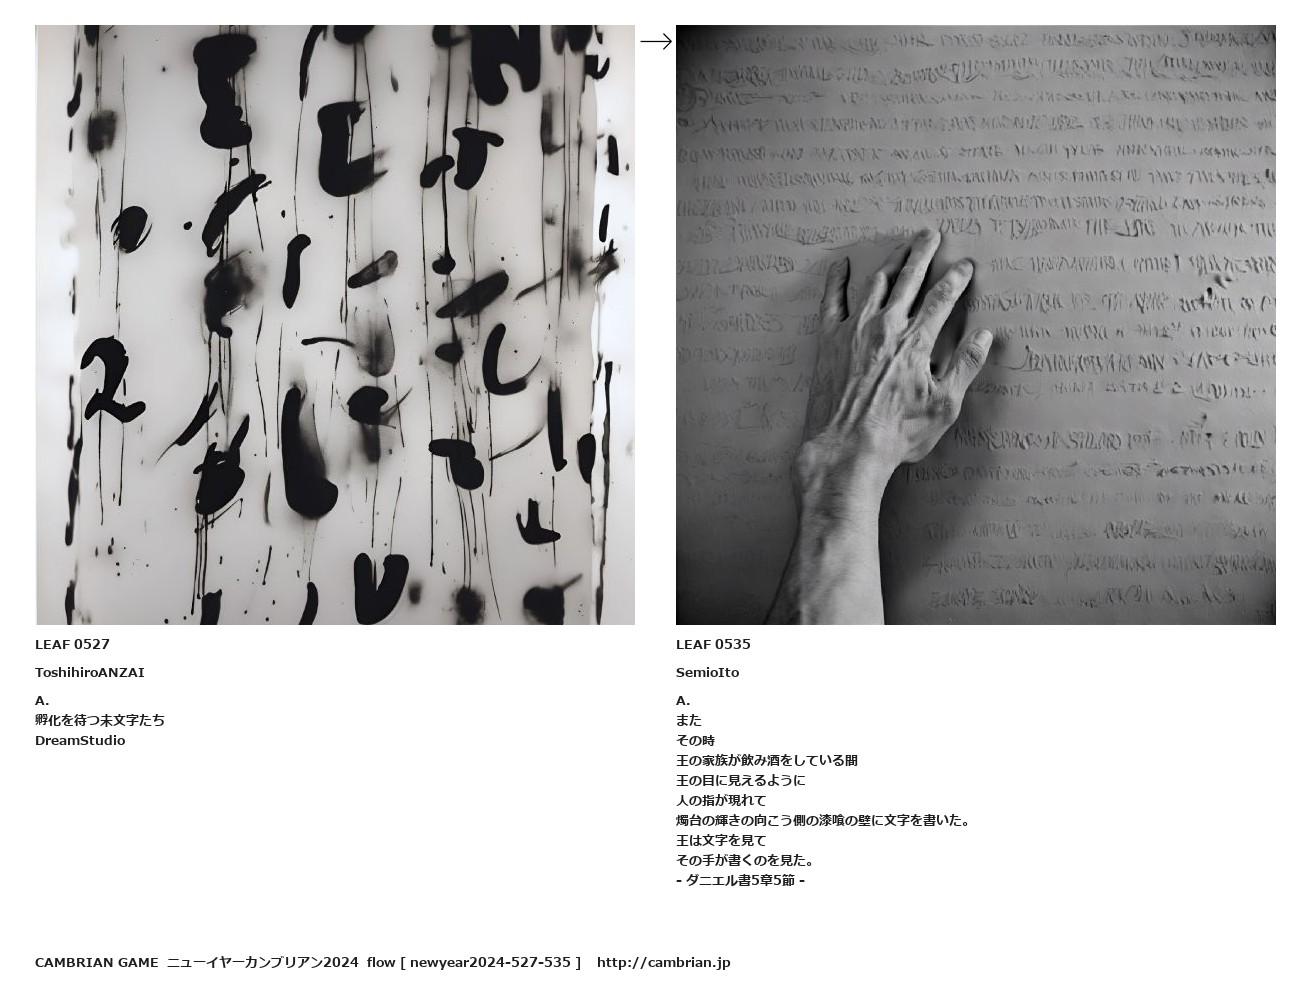 LEAF 0527
ToshihiroANZAI
A.
孵化を待つ未文字たち
DreamStudio
LEAF 0535
SemioIto
A.
また
その時
王の家族が飲み酒をしている間
王の目に見えるように
人の指が現れて
燭台の輝きの向こう側の漆喰の壁に文字を書いた。
王は文字を見て
その手が書くのを見た。
- ダニエル書5章5節 -
CAMBRIAN GAME ニューイヤーカンブリアン2024 flow [ newyear2024-527-535 ] http://cambrian.jp